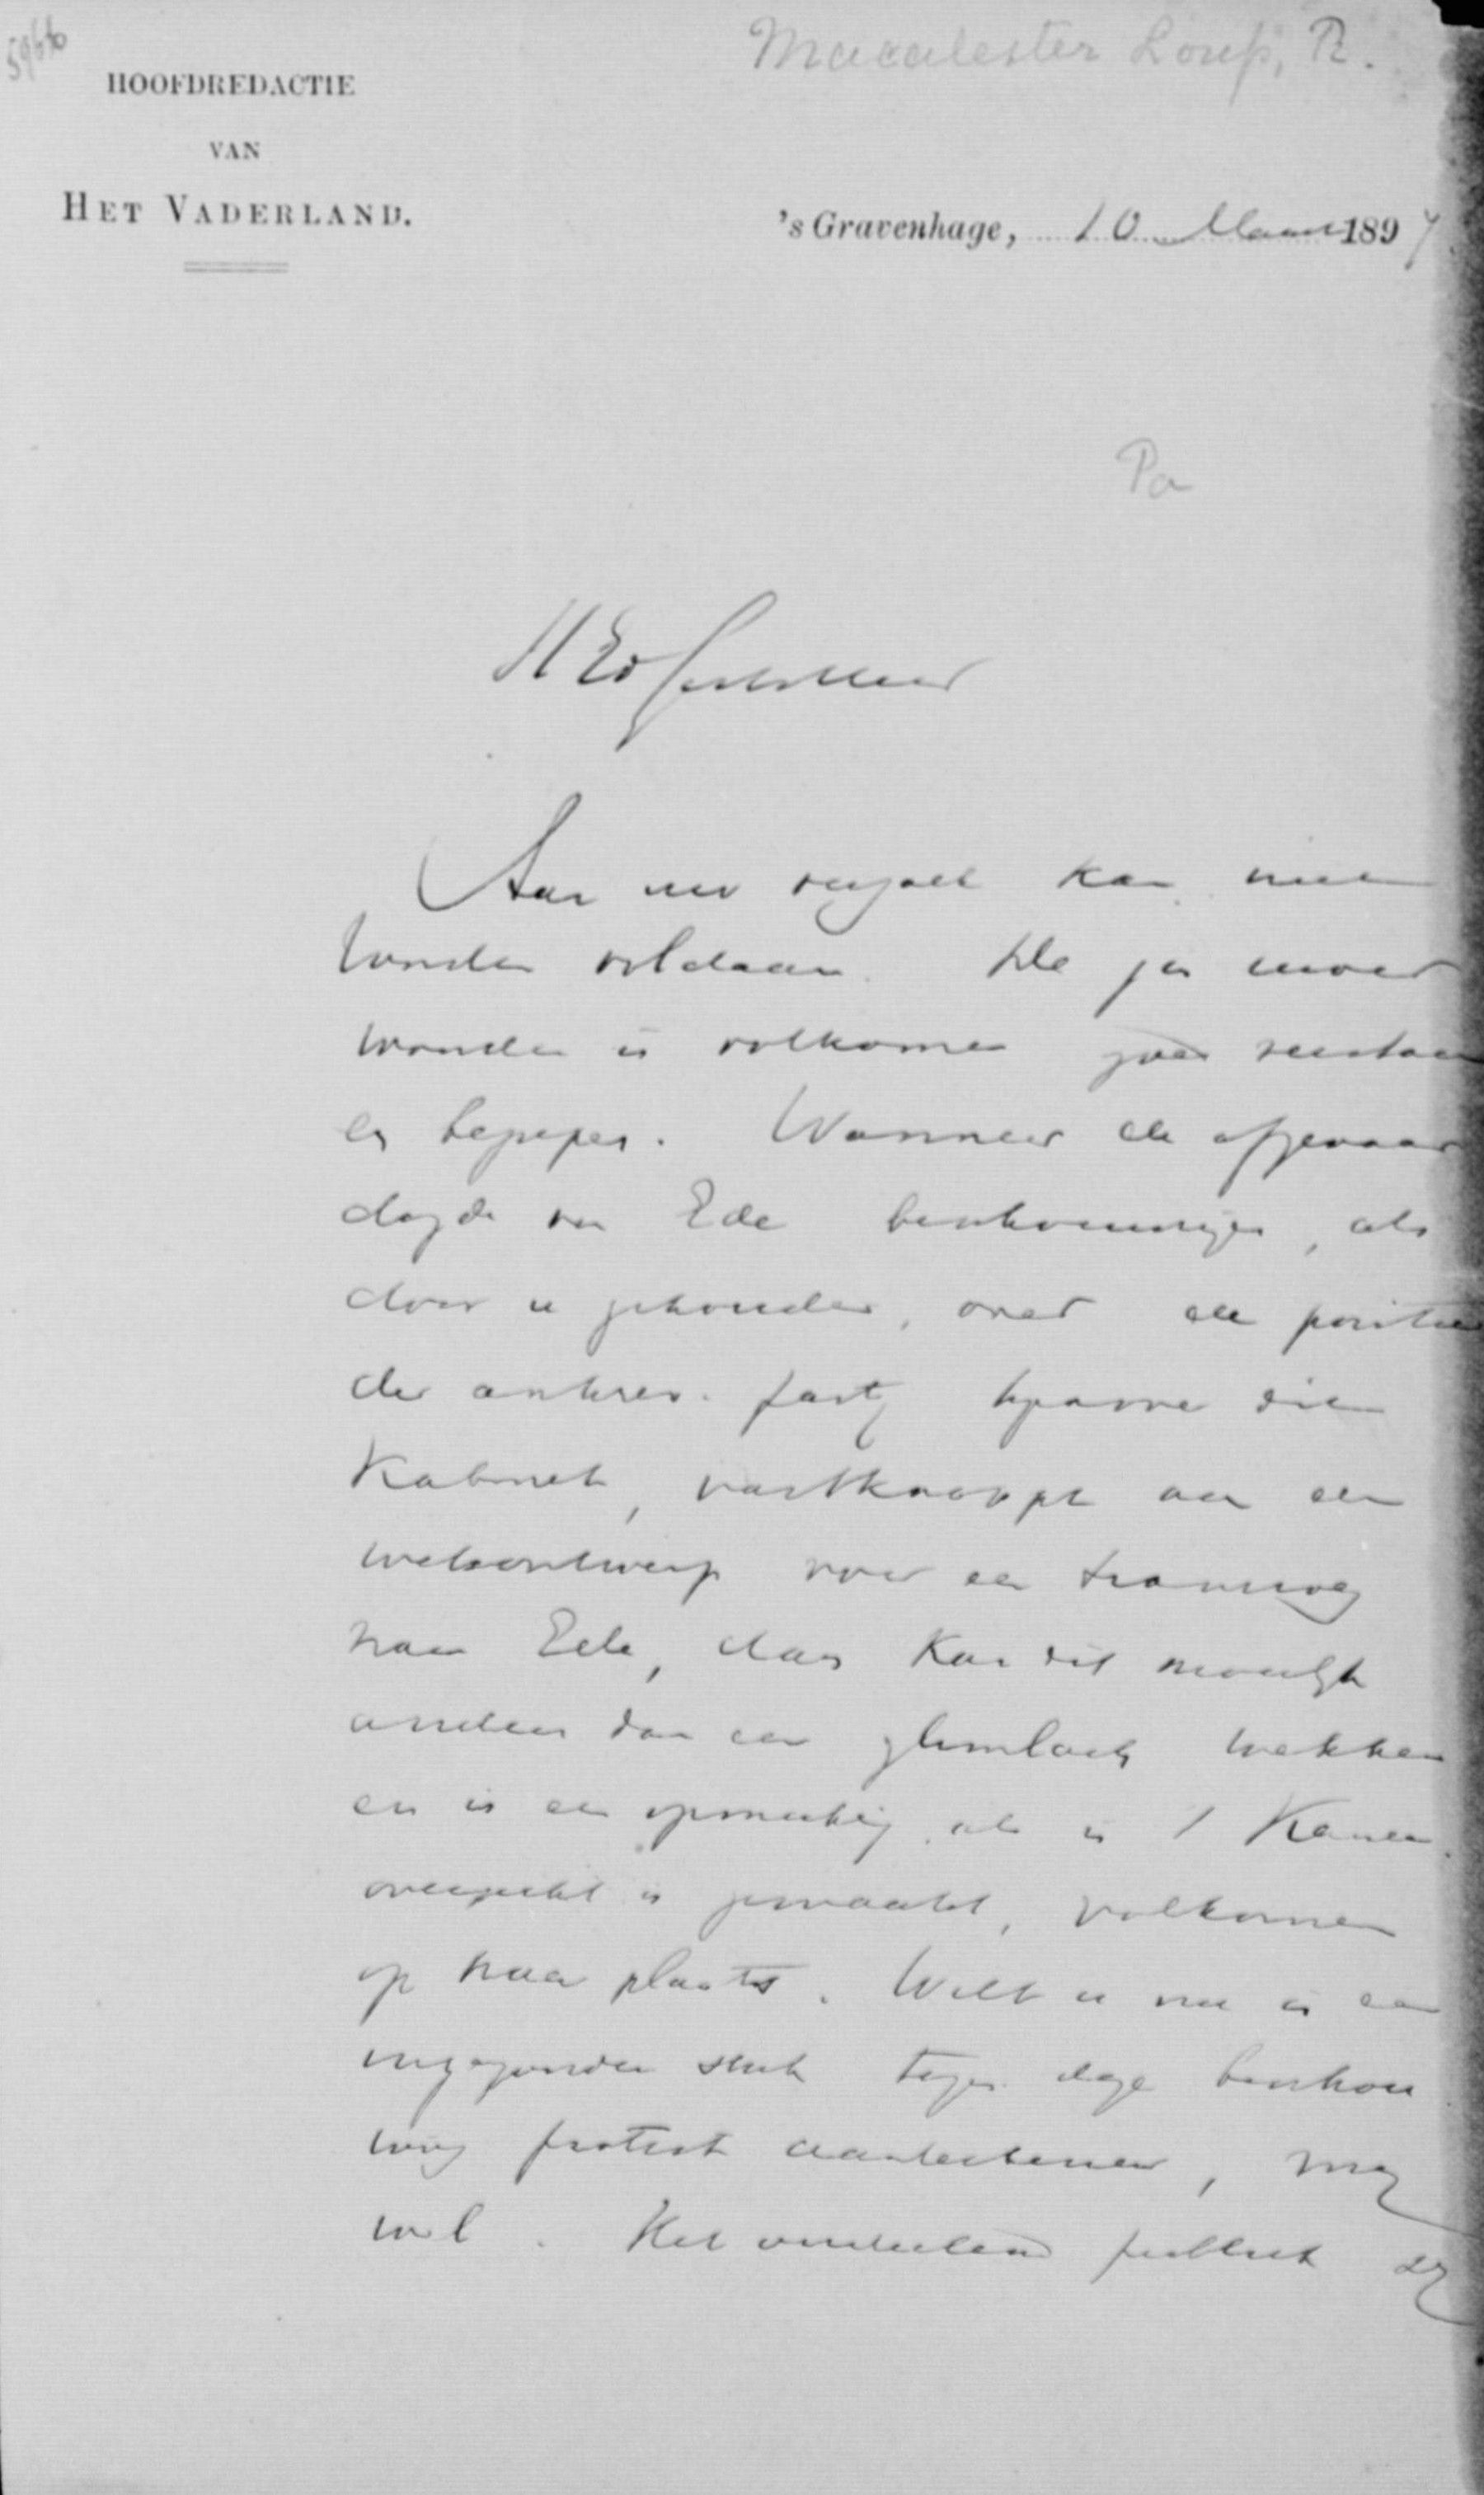 5966
Macalester Loup, R.
HOOFDREDACTIE
VAN
HET VADERLAND.
's Gravenhage, 10 Maart 1897
Pa
HEdGestr Heer
Aan uw verzoek kan niet
worden voldaan. De
woorden is volkomen goed verstaan
en begrepen. Wanneer de afgevaar
digde van Ede beschouwingen, als
door u gehouden, over de positie
der antirev. partij tegenover dit
Kabinet, vastknoopt aan een
wetsontwerp voor een tramweg
naar Ede, dan kan dit moeilijk
anders dan een glimlach wekken
en is een opmerking als in 't Kamer
overzicht is gemaakt, volkomen
op haar plaats. Wilt u nu in een
ingezonden stuk tegen deze beschou
wing protest aanteekenen, mij
wel. Het publiek zij